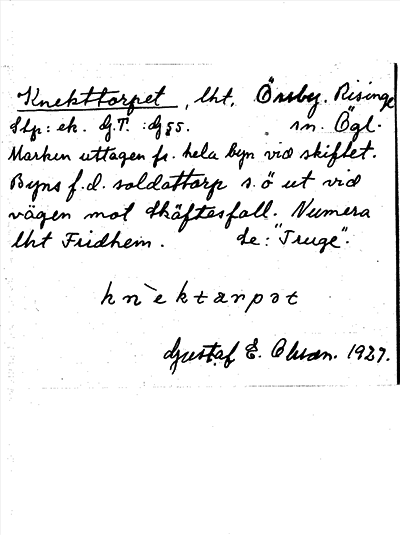 Knekttorpet, lht, Örsby. Risinge
Stp: ek. G.T. : G55. sn. Ögl.
Marken uttagen fr. hela byn vid skiftet.
Byns f.d. soldattorp s.ö ut vid
vägen mot Skäftesfall. Numera
lht Fridhem. se: "Truge".
knèktarpət
Gustaf E. Olsson. 1927.